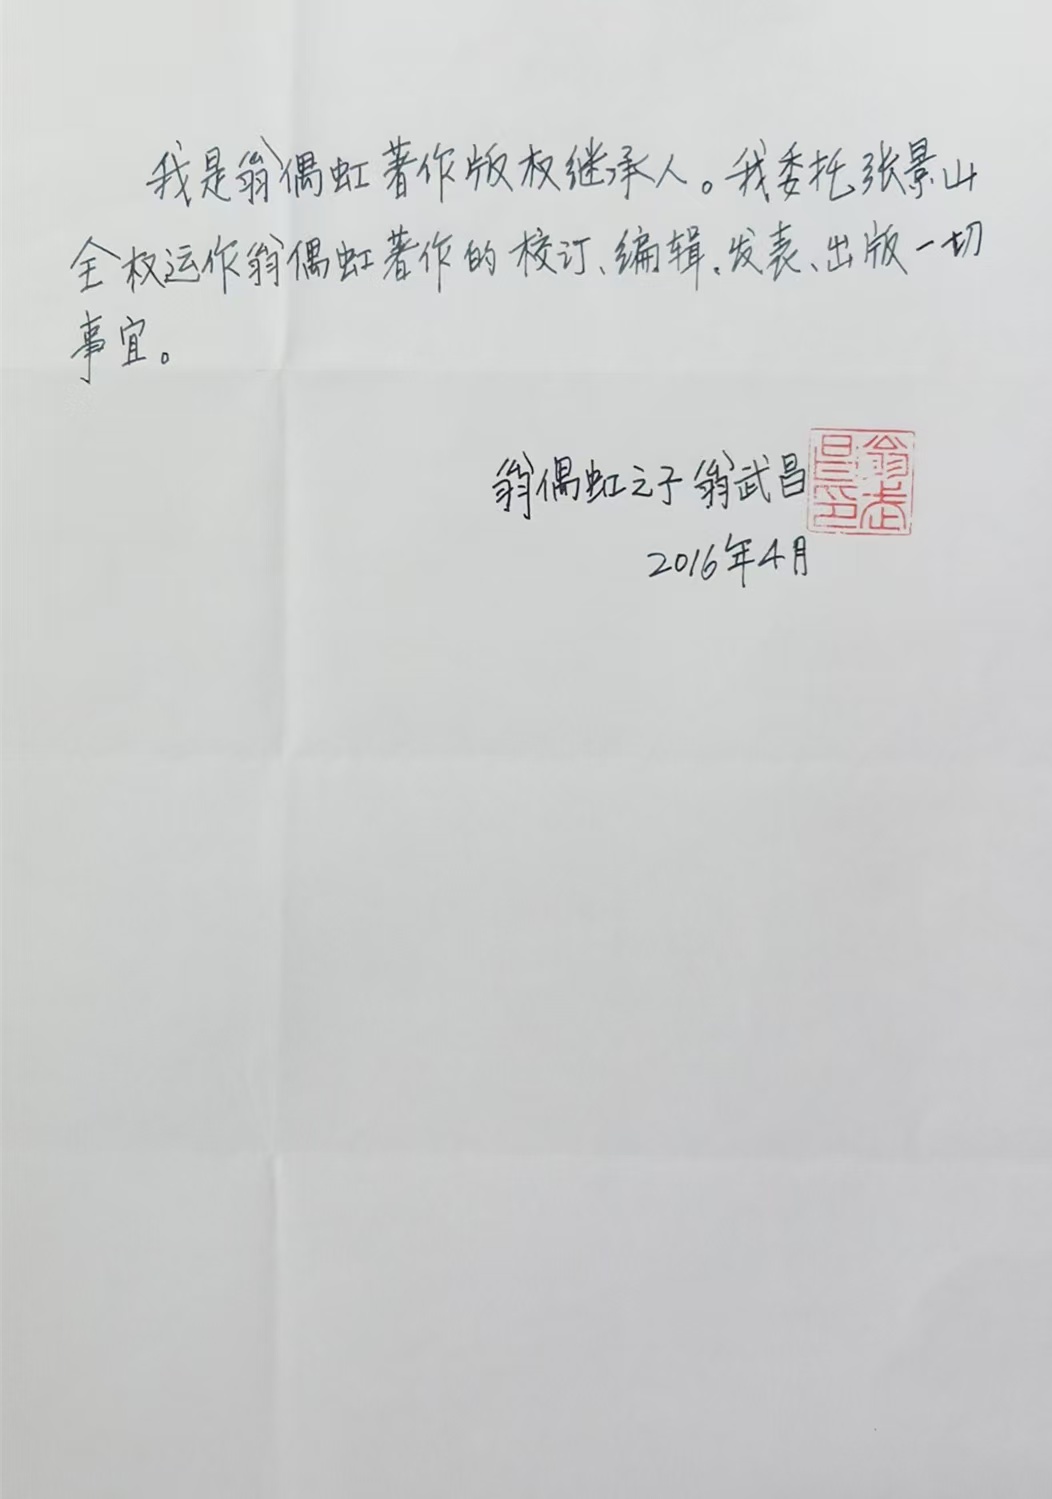 我是翁偶虹著作版权继承人。我委托张景山
全权运作翁偶虹著作的校订、编辑、发表、出版一切
事宜。
翁偶虹之子 翁武昌
2016年4月
翁武昌印